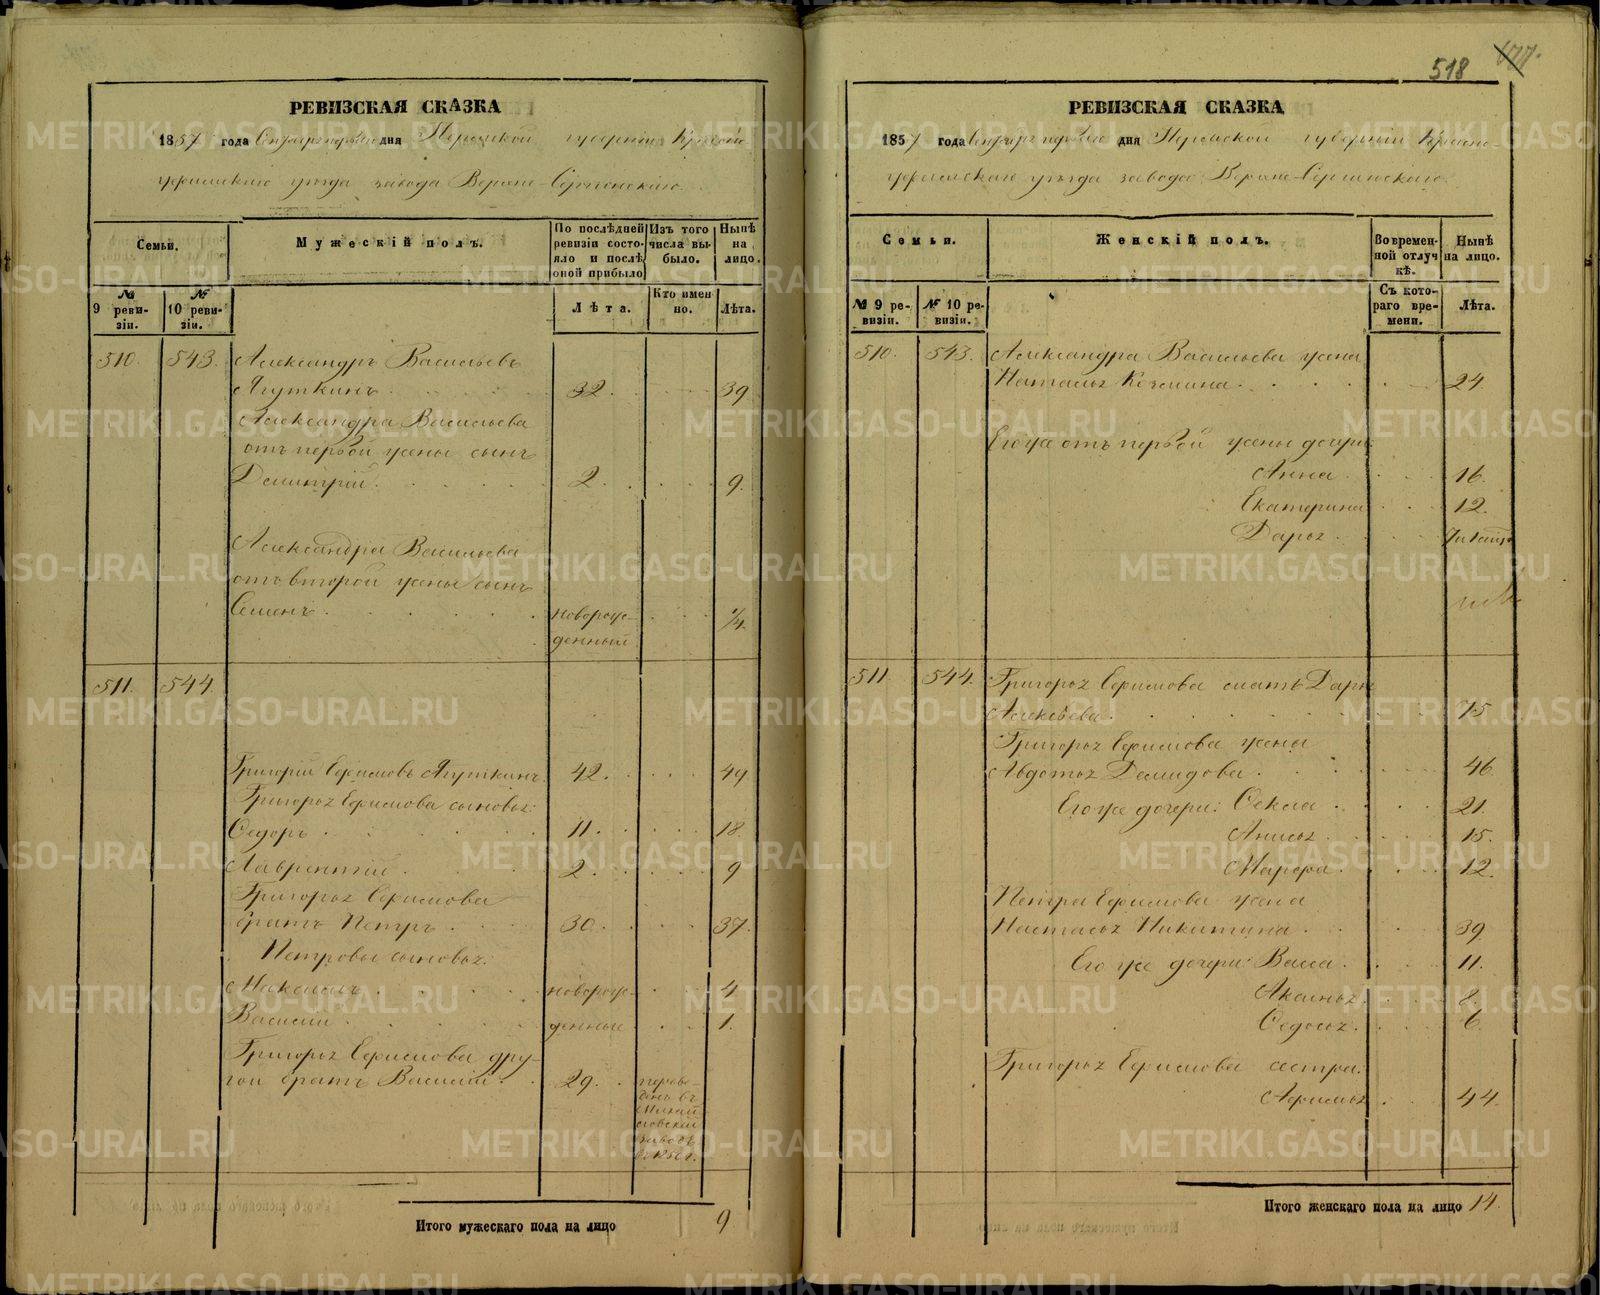 РЕВИЗСКАЯ СКАЗКА
1857 года Сентября перваго дня Пермской губернiи Красно-
уфимскаго уѣзда завода Верхне-Сергинскаго.
Семьи.
Мужескiй полъ.
По послѣдней ревизiи состо-
яло и послѣ оной прибыло
Изъ того числа вы-
было.
Нынѣ на лицо.
№ 9 реви-
зiи.
№ 10 реви-
зiи.
Лѣта.
Кто имен
но.
Лѣта.
510. 543. Александръ Васильевъ
Ягуткинъ 32. 39.
Александра Васильева
отъ первой жены сынъ
Димитрiй. 2. 9.
Александра Васильева
отъ второй жены сынъ
Семенъ новорож-
денный 1/4.
511. 544.
Григорiй Ефимовъ Ягуткинъ 42. 49.
Григорья Ефимова сыновья:
Ѳедоръ 11. 18.
Лаврентiй 2. 9
Григорья Ефимова
братъ Петръ 30. 37.
Петровы сыновья:
Максимъ новорож- 4
Василiй денные 1.
Григорья Ефимова дру-
гой братъ Василiй. 29. переве-
денъ въ
Михай
ловскiй
заводъ
Итого мужескаго пола на лицо 9
518
177.
РЕВИЗСКАЯ СКАЗКА
1857 года Сентября перваго дня Пермской губернiи Красно-
уфимскаго уѣзда завода Верхне-Сергинскаго.
Семьи.
Женскiй полъ.
Во времен-
ной отлуч
кѣ.
Нынѣ на лицо.
№ 9 ре-
визiи.
№ 10 ре-
визiи.
Съ кото-
раго вре-
мени.
Лѣта.
510. 543. Александра Васильева жена
Наталья Козмина 24.
Его же отъ первой жены дочери
Анна 16.
Екатерина 12.
Дарья
511 544. Григорья Ефимова мать Дарья
Алексѣева 75
Григорья Ефимова жена
Авдотья Демидова 46
Его же дочери: Ѳекла 21.
Анисья 15.
Марфа 12.
Петра Ефимова жена
Настасья Никитина 39
Его же дочери: Васса 11.
Аксинья 8.
Ѳедосья 6.
Григорья Ефимова сестра:
Афимья 44.
Итого женскаго пола на лицо 14.
METRIKI.GASO-URAL.RU